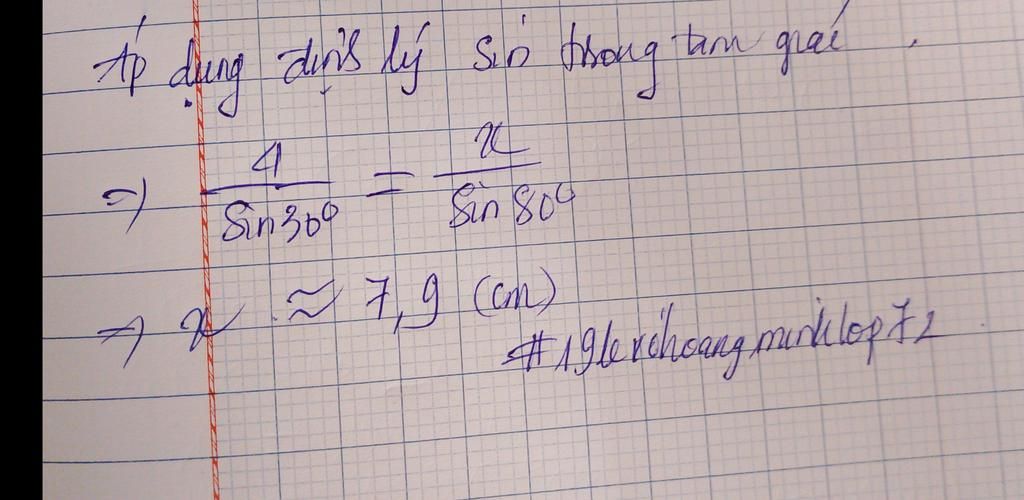 Áp dụng định lý Sin trong tam giác.
=> 4/Sin30° = x/Sin 80°
=> x ≈ 7,9 (cm)
#19lexchoangminhlop72